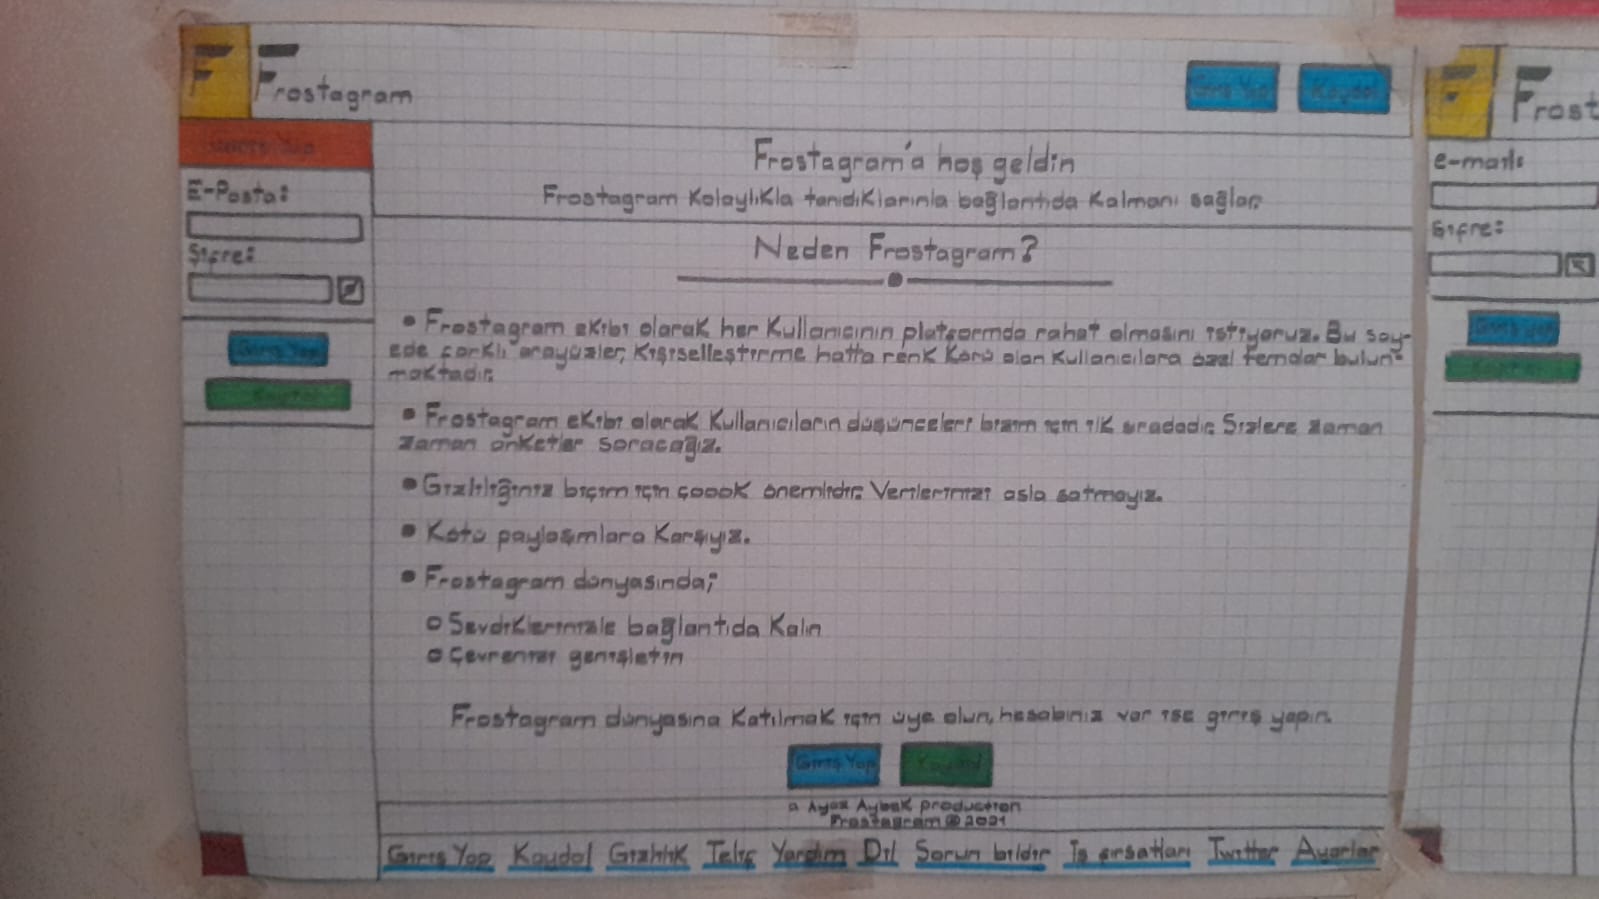 F Frostagram
Giriş Yap Kaydol
Giriş Yap
E-Posta:
Şifre:
Giriş Yap
Kaydol
Frostagram'a hoş geldin
Frostagram Kolaylıkla tanıdıklarınla bağlantıda Kalmanı sağlar.
Neden Frostagram?
• Frostagram ekibi olarak her Kullanıcının platformda rahat olmasını istiyoruz. Bu say-
ede farklı arayüzler, Kişiselleştirme hatta renk Körü olan Kullanıcılara özel temalar bulun-
maktadır.
• Frostagram ekibi olarak Kullanıcıların düşünceleri bizim için ilk sıradadır. Sizlere zaman
zaman anketler soracağız.
• Gizliliğiniz biçim için çoook önemlidir. Verilerinizi asla satmayız.
• Kötü paylaşımlara Karşıyız.
• Frostagram dünyasında;
o Sevdiklerinizle bağlantıda Kalın
o Çevrenizi genişletin
Frostagram dünyasına Katılmak için üye olun, hesabınız var ise giriş yapın.
Giriş Yap Kaydol
a Ayaz Aybak production
Frostagram © 2021
Giriş Yap Kaydol Gizlilik Telif Yardım Dil Sorun bildir İş fırsatları Twitter Ayarlar
F Frost
e-mail:
Şifre:
Giriş Yap